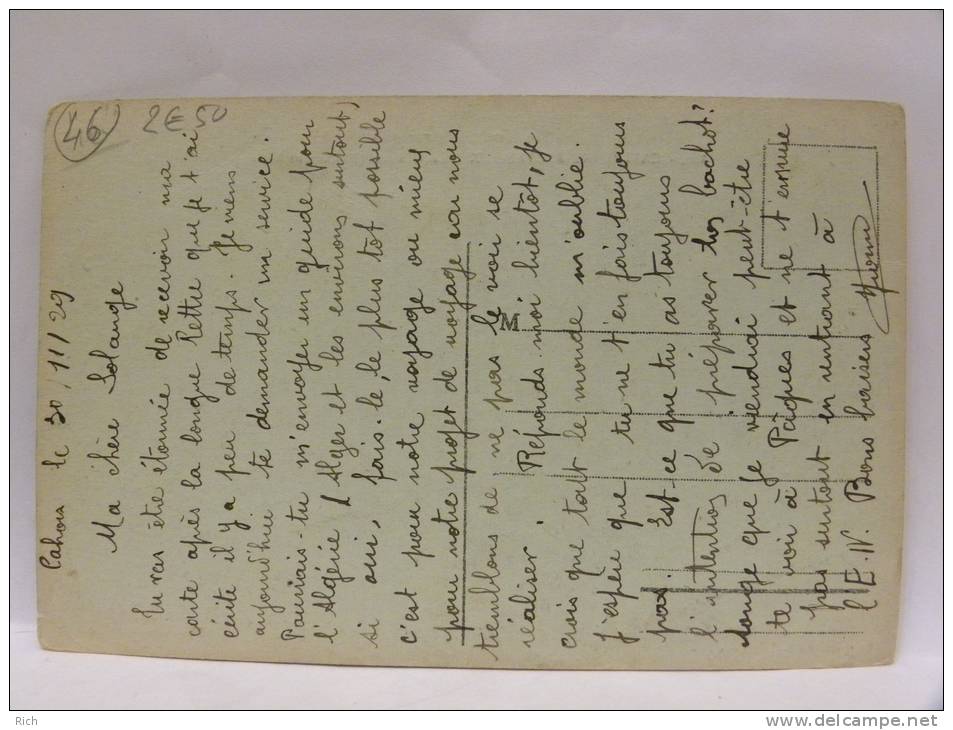 46
2€50
Cahors le 30/11/29
Ma chère Solange
Tu vas été étonnée de recevoir ma
carte après la longue lettre que je t'ai
écrite il y a peu de temps. Je viens
aujourd'hui te demander un service.
Pourrais-tu m'envoyer un guide pour
l'Algérie, Alger et les environs surtout,
si oui, fais-le, le plus tôt possible
c'est pour notre voyage ou mieux
pour notre projet de voyage car nous
tremblons de ne pas le voir se
réaliser. Réponds-moi bientôt, je
crois que tout le monde m'oublie.
J'espère que tu ne t'en fais toujours
pas. Est-ce que tu as toujours
l'intention de préparer tes bachot?
songe que je viendrai peut-être
te voir à Pâques et ne t'ennuie
pas surtout en rentrant à
l'E.N. Bons baisers
M
Rich
www.delcampe.net